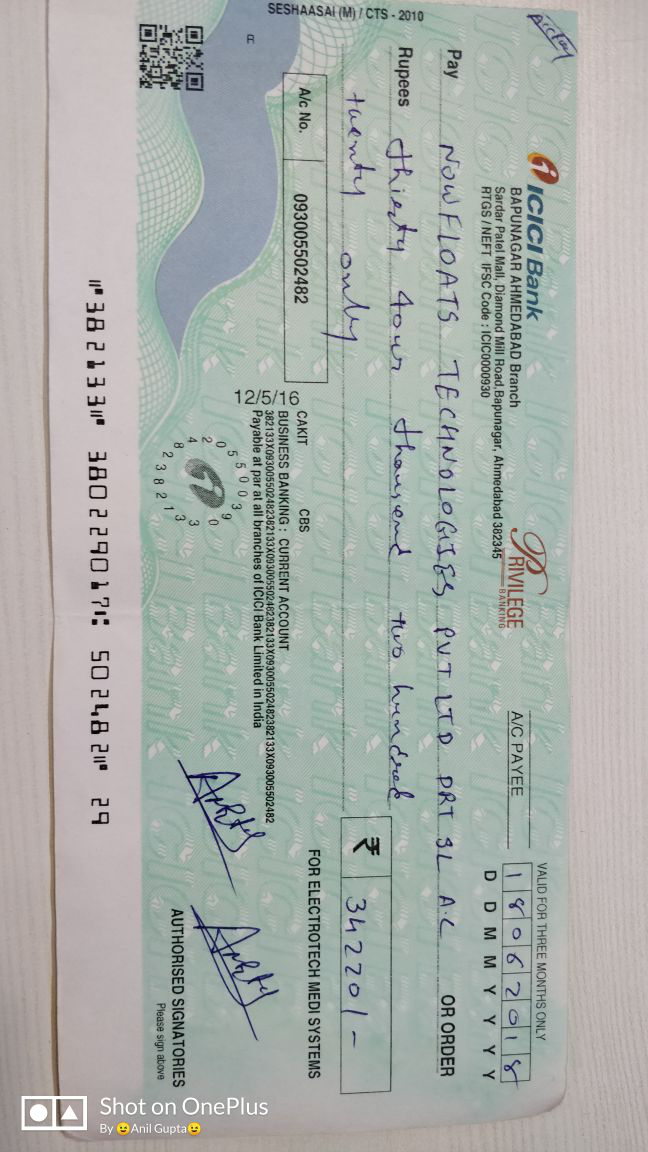 SESHAASAI (M) / CTS - 2010
A/c Pay
ICICI Bank
BAPUNAGAR AHMEDABAD Branch
Sardar Patel Mall, Diamond Mill Road,Bapunagar, Ahmedabad 382345
RTGS / NEFT IFSC Code : ICIC0000930
PRIVILEGE
BANKING
A/C PAYEE
VALID FOR THREE MONTHS ONLY
18062018
D D M M Y Y Y Y
Pay NOWFLOATS TECHNOLOGIES PVT LTD PRT SL A.C OR ORDER
Rupees thirty four thousand two hundred
twenty only
₹ 34220/-
R
A/c No. 093005502482
12/5/16
CAKIT CBS
BUSINESS BANKING : CURRENT ACCOUNT
382133X093005502482382133X093005502482382133X093005502482382133X093005502482
Payable at par at all branches of ICICI Bank Limited in India
FOR ELECTROTECH MEDI SYSTEMS
AUTHORISED SIGNATORIES
Please sign above
⑈382133⑈ 380229017⑆ 502482⑈ 29
Shot on OnePlus
By 😉Anil Gupta😉